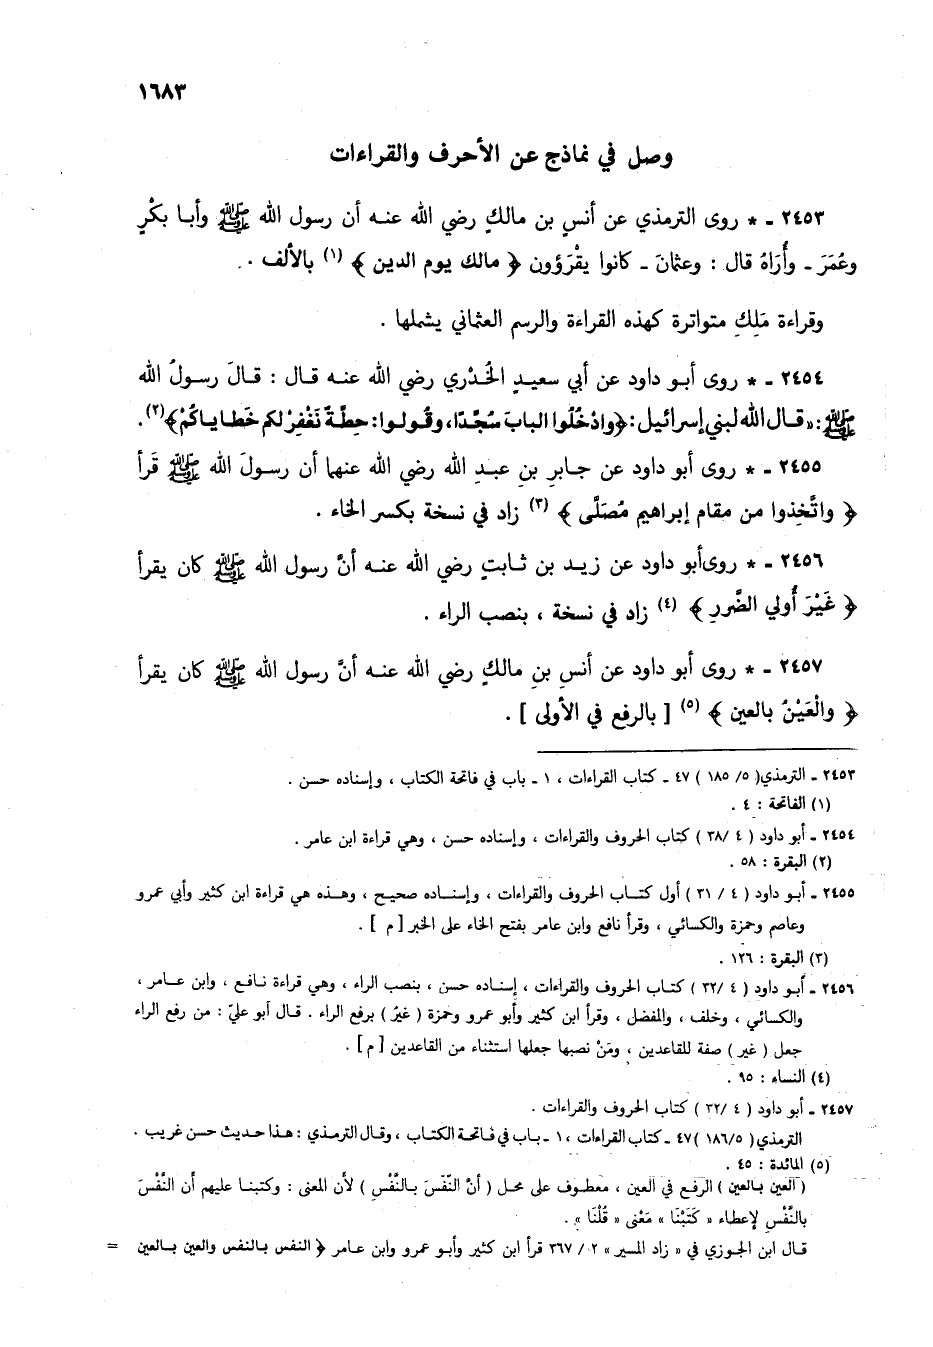 ١٦٨٣
وصل في نماذج عن الأحرف والقراءات
٢٤٥٣ - * روى الترمذي عن أنسٍ بن مالكٍ رضي الله عنه أن رسول الله ﷺ وأبا بكْرٍ
وعُمَرَ - وأُرَاهُ قال : وعثمانَ - كانوا يقْرَؤون ﴿ مالك يوم الدين ﴾ (١) بالألف .
وقراءة مَلِكِ متواترة كهذه القراءة والرسم العثماني يشملها .
٢٤٥٤ - * روى أبو داود عن أبي سعيدٍ الخُدْري رضي الله عنه قال : قالَ رسولُ الله
ﷺ : « قال الله لبني إسرائيل : ﴿وادْخُلُوا البابَ سُجَّدًا، وقُولوا: حِطَّةٌ نَغْفِرْ لكم خَطاياكُمْ﴾(٢).
٢٤٥٥ - * روى أبو داود عن جابرِ بن عبدِ الله رضي الله عنهما أن رسولَ الله ﷺ قَرأَ
﴿ واتَّخِذوا من مقام إبراهيم مُصَلَّى ﴾ (٣) زاد في نسخة بكسر الخاء .
٢٤٥٦ - * روى أبو داود عن زيد بن ثابتٍ رضي الله عنه أنَّ رسول الله ﷺ كان يقرأ
﴿ غَيْرَ أُولي الضَّررِ ﴾ (٤) زاد في نسخة ، بنصب الراء .
٢٤٥٧ - * روى أبو داود عن أنسِ بنِ مالكٍ رضي الله عنه أنَّ رسول الله ﷺ كان يقرأ
﴿ والْعَيْنُ بالعين ﴾ (٥) [ بالرفع في الأولى ] .
٢٤٥٣ - الترمذي( ٥/ ١٨٥ ) ٤٧ - كتاب القراءات ، ١ - باب في فاتحة الكتاب ، وإسناده حسن .
(١) الفاتحة : ٤ .
٢٤٥٤ - أبو داود ( ٤ /٣٨ ) كتاب الحروف والقراءات ، وإسناده حسن ، وهي قراءة ابن عامر .
(٢) البقرة : ٥٨ .
٢٤٥٥ - أبو داود ( ٤ / ٣١ ) أول كتاب الحروف والقراءات ، وإسناده صحيح ، وهذه هي قراءة ابن كثير وأبي عمرو
وعاصم وحمزة والكسائي ، وقرأ نافع وابن عامر بفتح الخاء على الخبر [ م ] .
(٣) البقرة : ١٢٦ .
٢٤٥٦ - أبو داود ( ٤ /٣٢ ) كتاب الحروف والقراءات ، إسناده حسن ، بنصب الراء ، وهي قراءة نافع ، وابن عامر ،
والكسائي ، وخلف ، والمفضل ، وقرأ ابن كثير وأبو عمرو وحمزة ( غيرُ ) برفع الراء . قال أبو عليّ : من رفع الراء
جعل ( غير ) صفة للقاعدين ، ومَنْ نصبها جعلها استثناء من القاعدين [ م ] .
(٤) النساء : ٩٥ .
٢٤٥٧ - أبو داود ( ٤ /٣٢ ) كتاب الحروف والقراءات .
الترمذي( ١٨٦/٥ ) ٤٧ - كتاب القراءات ، ١ - باب في فاتحة الكتاب ، وقال الترمذي : هذا حديث حسن غريب .
(٥) المائدة : ٤٥ .
( العين بالعين ) الرفع في العين ، معطوف على محل ( أنَّ النَّفسَ بالنَّفْسِ ) لأن المعنى : وكتبنا عليهم أن النَّفْسَ
بالنَّفْسِ لإعطاء « كَتَبْنَا » مَعْنى « قُلْنَا » .
قال ابن الجوزي في « زاد المسير » ٢ / ٣٦٧ قرأ ابن كثير وأبو عمرو وابن عامر ﴿ النفس بالنفس والعين بالعين =